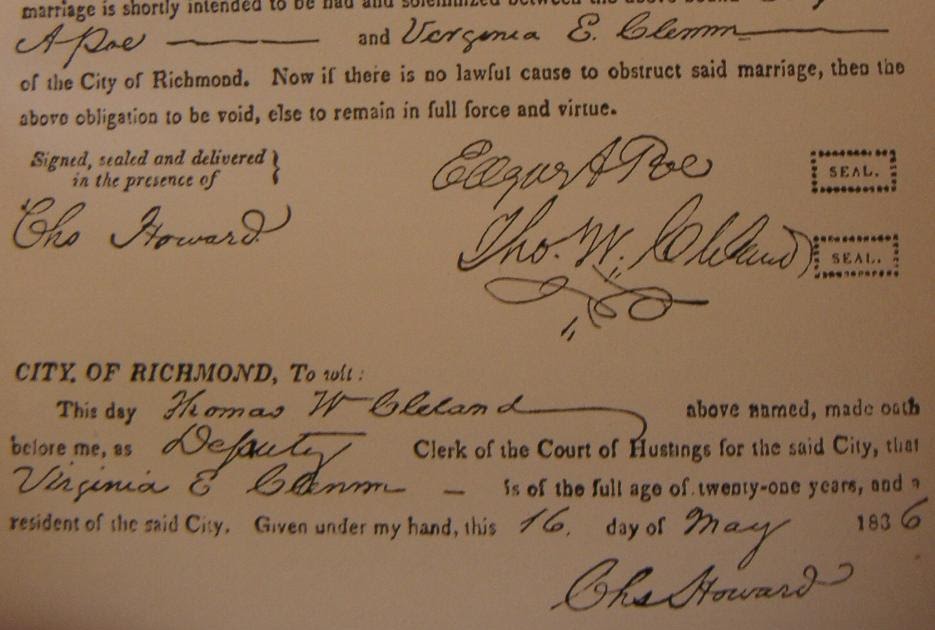 marriage is shortly intended to be had and solemnized between the above bound
A Poe and Verginia E. Clemm
of the City of Richmond. Now if there is no lawful cause to obstruct said marriage, then the
above obligation to be void, else to remain in full force and virtue.
Signed, sealed and delivered
in the presence of
Edgar A Poe SEAL.
Chs Howard
Tho. W. Cleland SEAL.
CITY OF RICHMOND, To wit:
This day Thomas W Cleland above named, made oath
before me, as Deputy Clerk of the Court of Hustings for the said City, that
Virginia E Clemm is of the full age of twenty-one years, and a
resident of the said City. Given under my hand, this 16. day of May 1836
Chs Howard